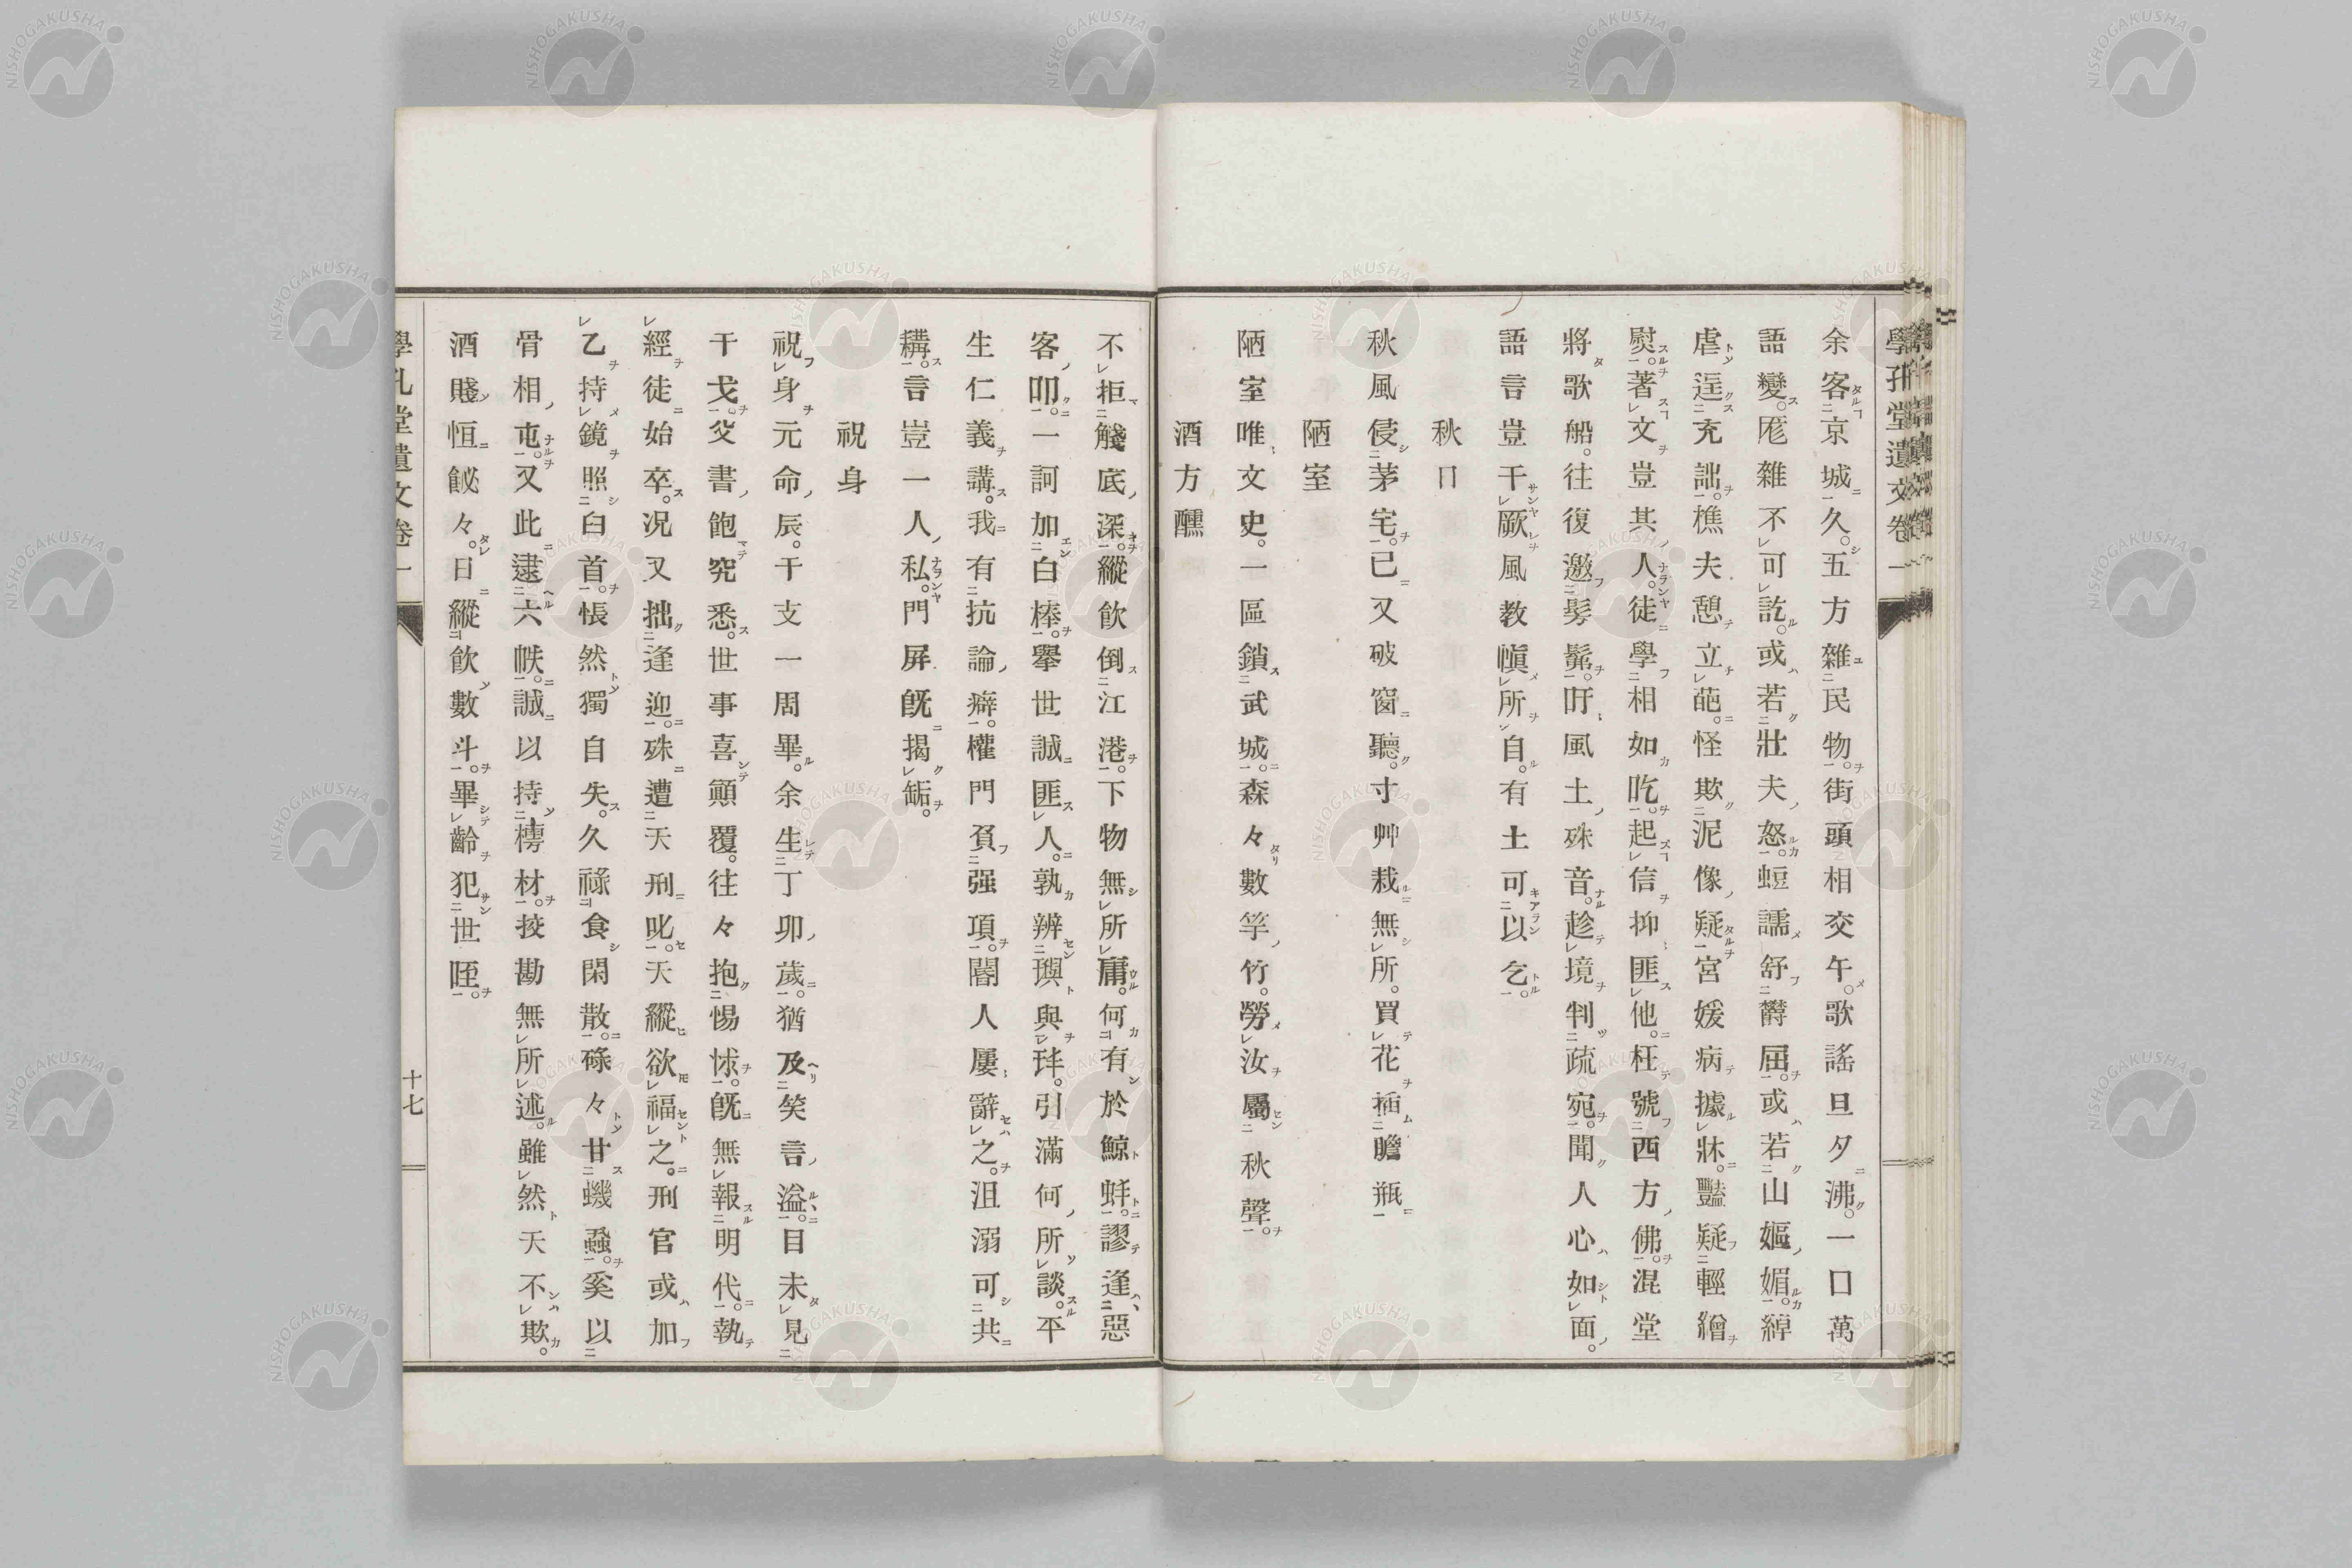 學孔堂遺文卷一
余客京城久。五方雜民物。街頭相交午。歌謠旦夕沸。一口萬
語變。厖雜不可訖。或若壯夫怒。短譳舒欝屈。或若山嫗媚。綽
虐逞充詘。樵夫憩立葩。怪欺泥像疑。宮媛病據牀。豔疑輕繒
熨。著文豈其人。徒學相如吃。起信抑匪他。枉號西方佛。混堂
將歌船。往復邀髣髴。吁風土殊音。趁境判疏宛。聞人心如面。
語言豈干厥風教愼所自。有土可以乞。
秋日
秋風侵茅宅。已又破窗聽。寸艸栽無所。買花插膽瓶
陋室
陋室唯文史。一區鎖武城。森々數竿竹。勞汝屬秋聲。
酒方醺
不拒觴底深。縱飮倒江港。下物無所庸。何有於鯨蚌。謬逢惡
客叩。一訶加白棒。擧世誠匪人。孰辨璵與玤。引滿何所談。平
生仁義講。我有抗論癖。權門負强項。闇人屢辭之。沮溺可共
耩。言豈一人私。門屏旣揭缿。
祝身
祝身元命辰。干支一周畢。余生丁卯歲。猶及笑言溢。目未見
干戈。爻書飽究悉。世事喜顚覆。往々抱惕怵。旣無報明代。執
經徒始卒。況又拙逢迎。殊遭天刑叱。天縱欲福之。刑官或加
乙。持鏡照白首。悵然獨自失。久祿食閑散。碌々甘蟣蝨。奚以
骨相屯。又此逮六帙。誠以持樗材。挍勘無所述。雖然天不欺。
酒賤恒飶々。日縱飮數斗。畢齡犯世咥。
學孔堂遺文卷一
十七
NISHOGAKUSHA